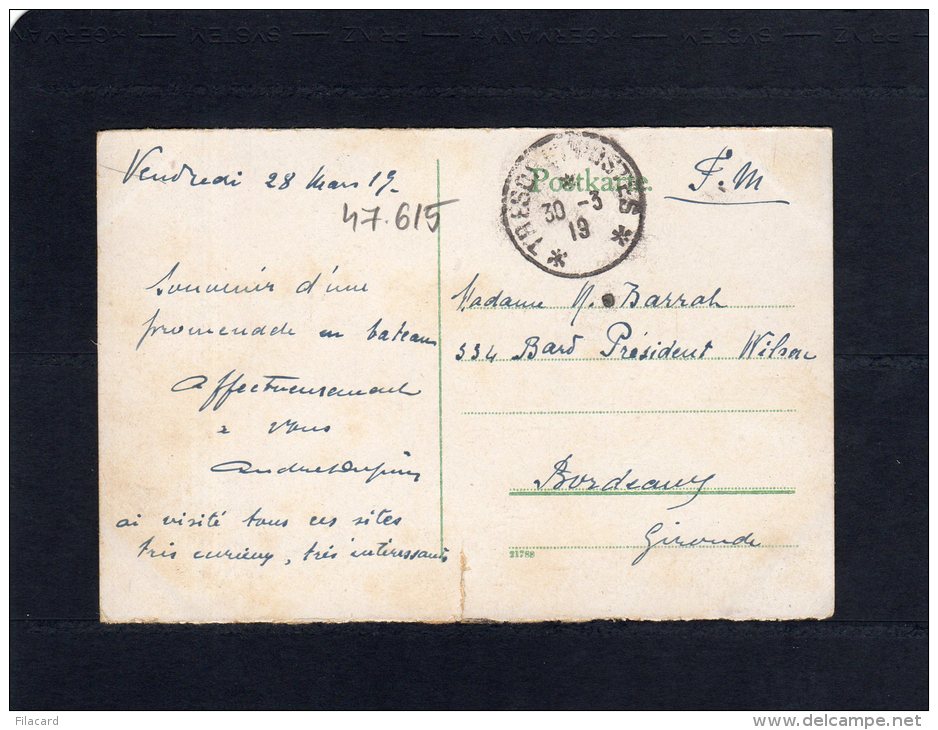 SYSTEM — PRYZ — *GERMANY* — SYSTEM — PRYZ — *GERMANY
Vendredi 28 Mars 19.
47.615
Souvenir d'une
promenade en bateau
Affectueusement
à vous
ai visité tous ces sites
très curieux, très intéressants
TRESOR ET POSTES
*
30 -3
19
* *
Postkarte.
F.M
Madame N. Barrah
334 Bard Président Wilson
Bordeaux
Gironde
21788
Filacard
www.delcampe.net